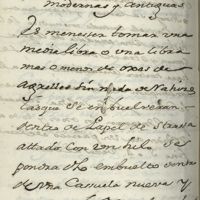 modernas y antiguas
Es menester tomar una
media libra o una libra
mas o menos de oxas de
Agxelles sin nada de
las que se enbuelveran
dentro de Papel de Straza
attado con un hilo Se
pondra enbuelto dentro
de una Casuela nueva y